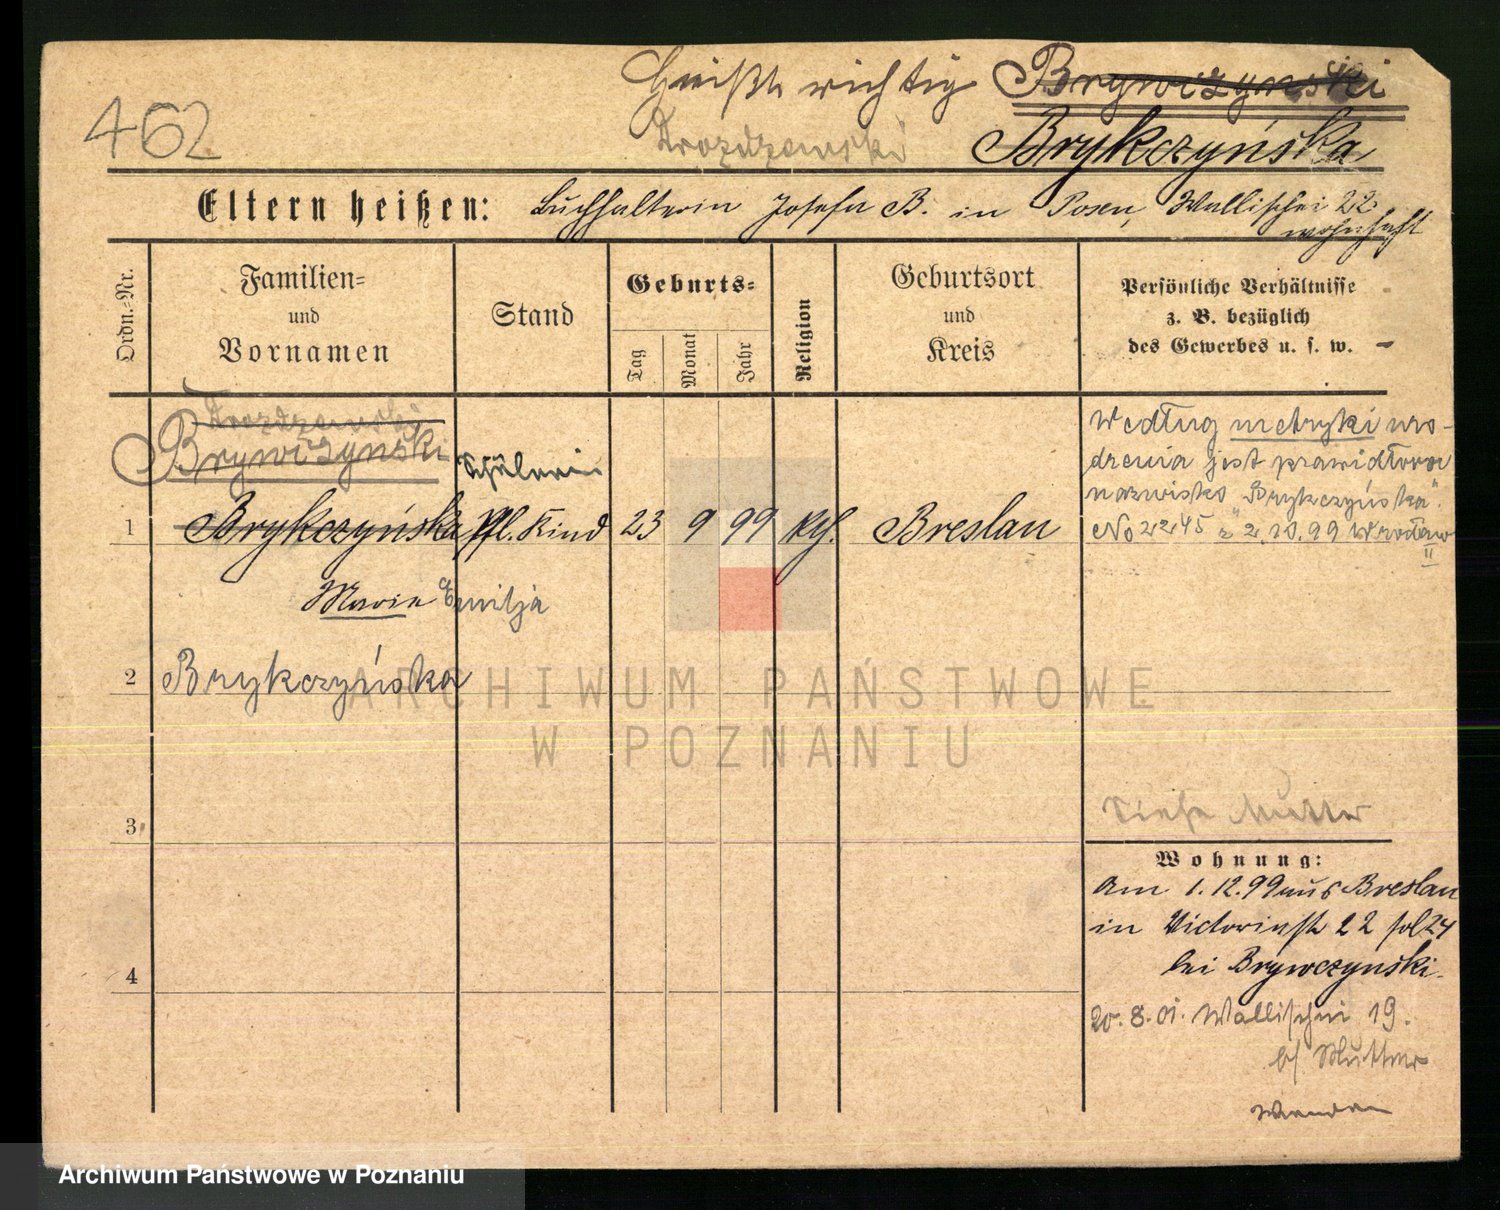 462
Heißt richtig Brywczynski
Drozdzewski Brykczyńska
Eltern heißen: Buchhalterin Josefa B. in Posen, Wallischei 22
wohnhaft
Ordn.-Nr.
Familien-
und
Vornamen
Stand
Geburts-
Tag
Monat
Jahr
Religion
Geburtsort
und
Kreis
Persönliche Verhältnisse
z. B. bezüglich
des Gewerbes u. s. w.
Drozdzewski
Brywczynski
Schülerin
1 Brykczyńska Pfl. Kind 23 9 99 kth. Breslau
Marie Emilja
2 Brykczyńska
3
4
Według metryki uro-
dzenia jest prawidłowe
nazwisko "Brykczyńska".
No 2245 z 2.10.99 Wrocław
II
Siehe Mutter
Wohnung:
Am 1.12.99 aus Breslau
in Victoriastr 22
bei Brywczynski.
20.8.01. Wallischei 19.
b/ Mutter
ARCHIWUM PAŃSTWOWE
W POZNANIU
Archiwum Państwowe w Poznaniu